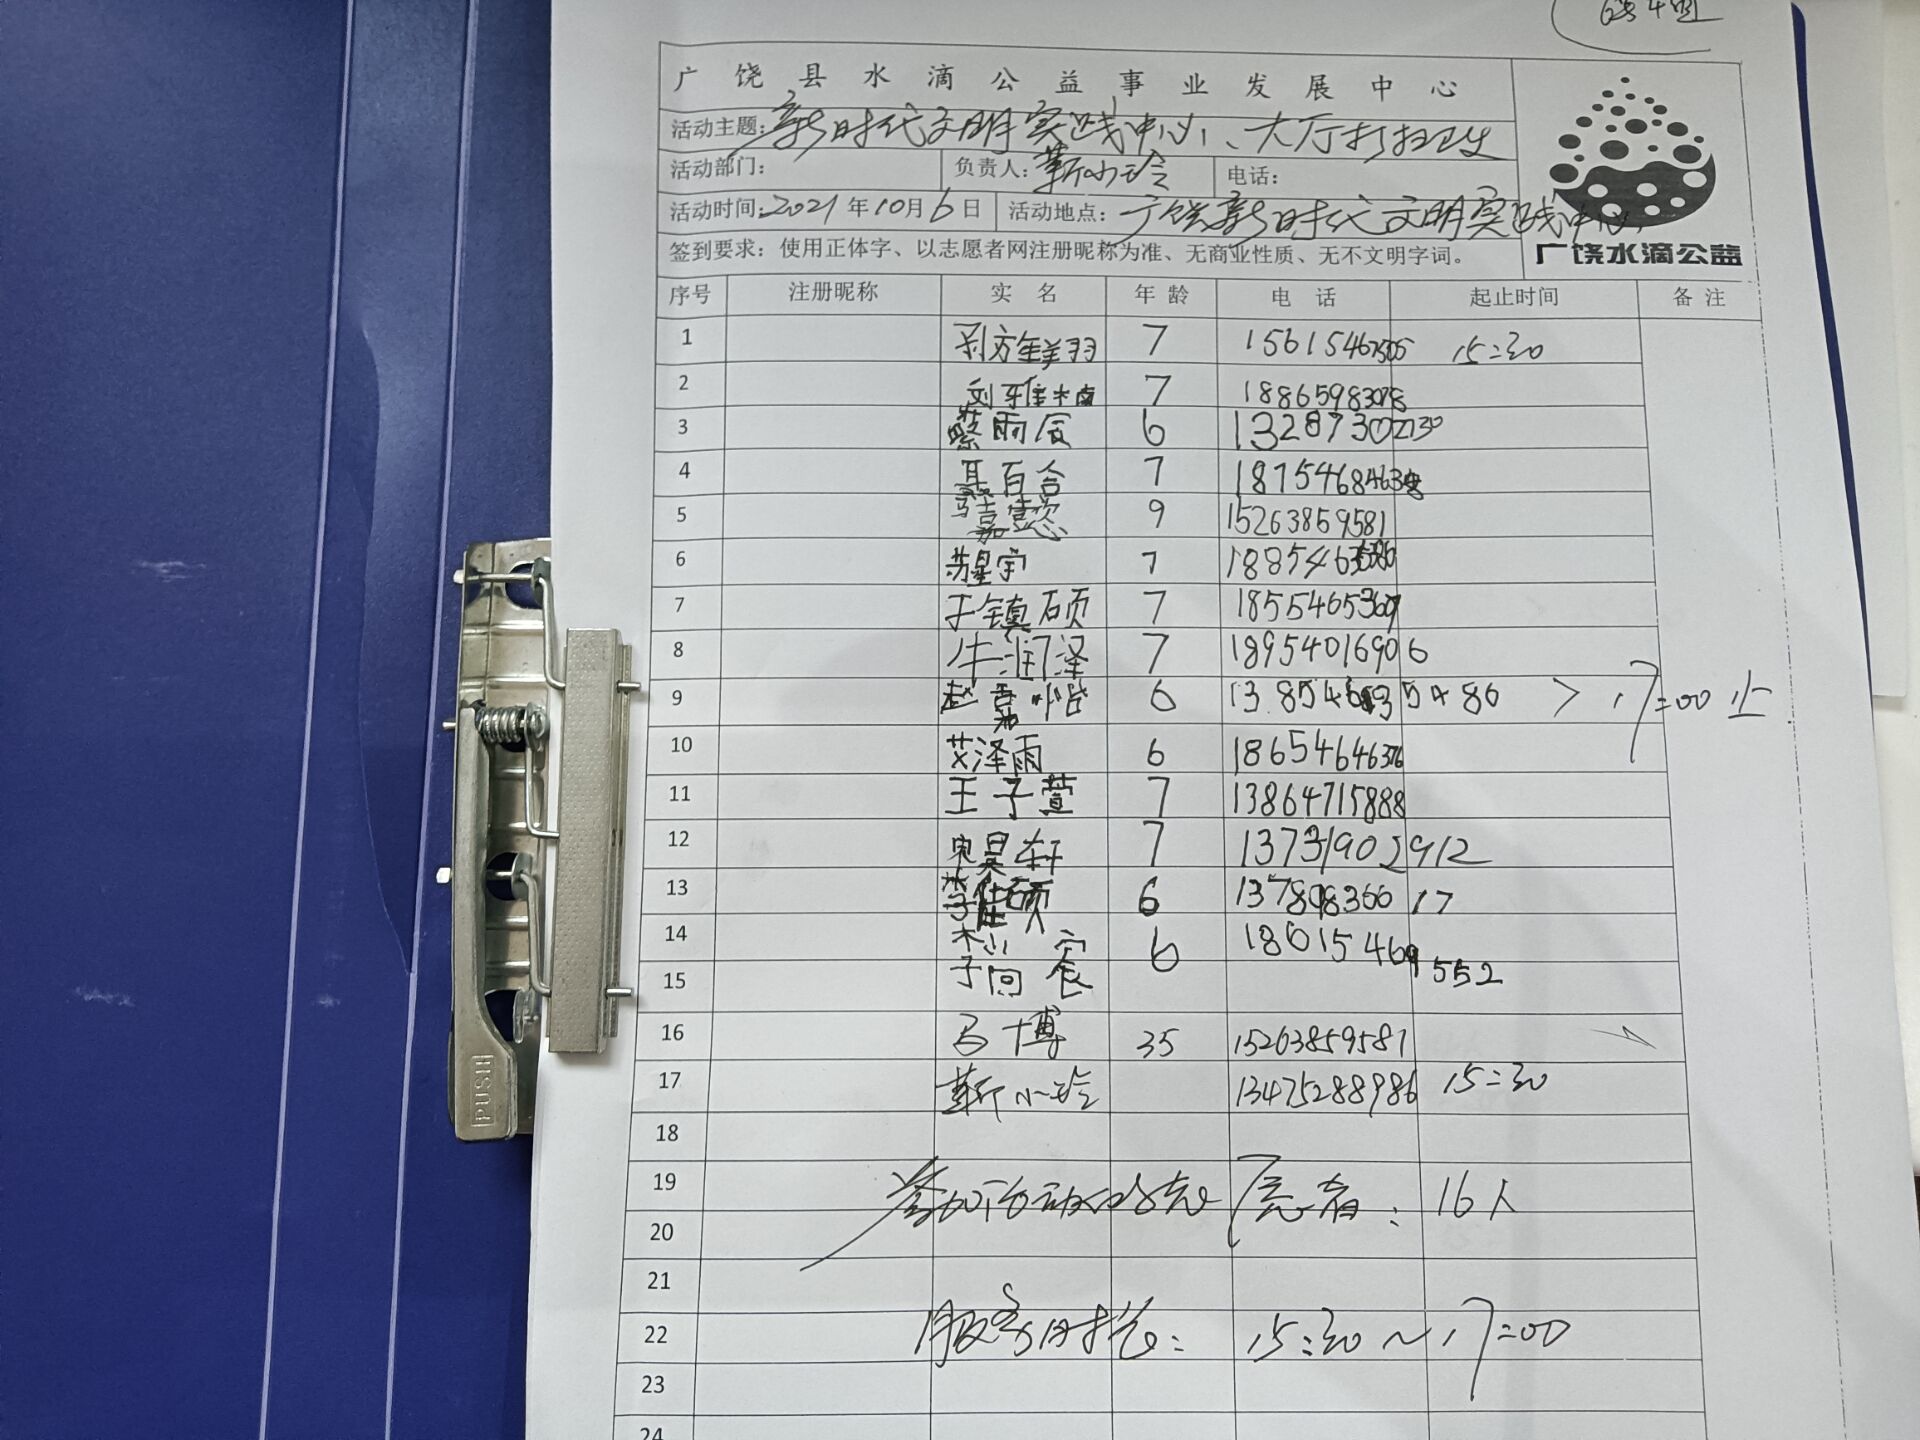 广饶县水滴公益事业发展中心
活动主题：新时代文明实践中心、大厅打扫卫生
活动部门： 负责人：靳小玲 电话：
活动时间：2021年10月6日 活动地点：广饶新时代文明实践中心
签到要求：使用正体字、以志愿者网注册昵称为准、无商业性质、无不文明字词。
广饶水滴公益
序号 注册昵称 实名 年龄 电话 起止时间 备注
1 7 15:30
2 刘雅楠 7 18865983078
3 蔡雨辰 6 13287302130
4 聂百合 7
5 9 15263859581
6 苏星宇 7
7 于镇硕 7
8 牛润泽 7 18954016906
9 赵嘉 6 17:00止
10 艾泽雨 6 18654646376
11 王子萱 7 13864715888
12 昊轩 7 13731902912
13 李佳硕 6
14 6
15
16 马博 35 15263859581
17 靳小玲 13475288986 15:30
18
19 参加活动的志愿者：16人
20
21
22 服务时长：15:30~17:00
23
24
PUSH